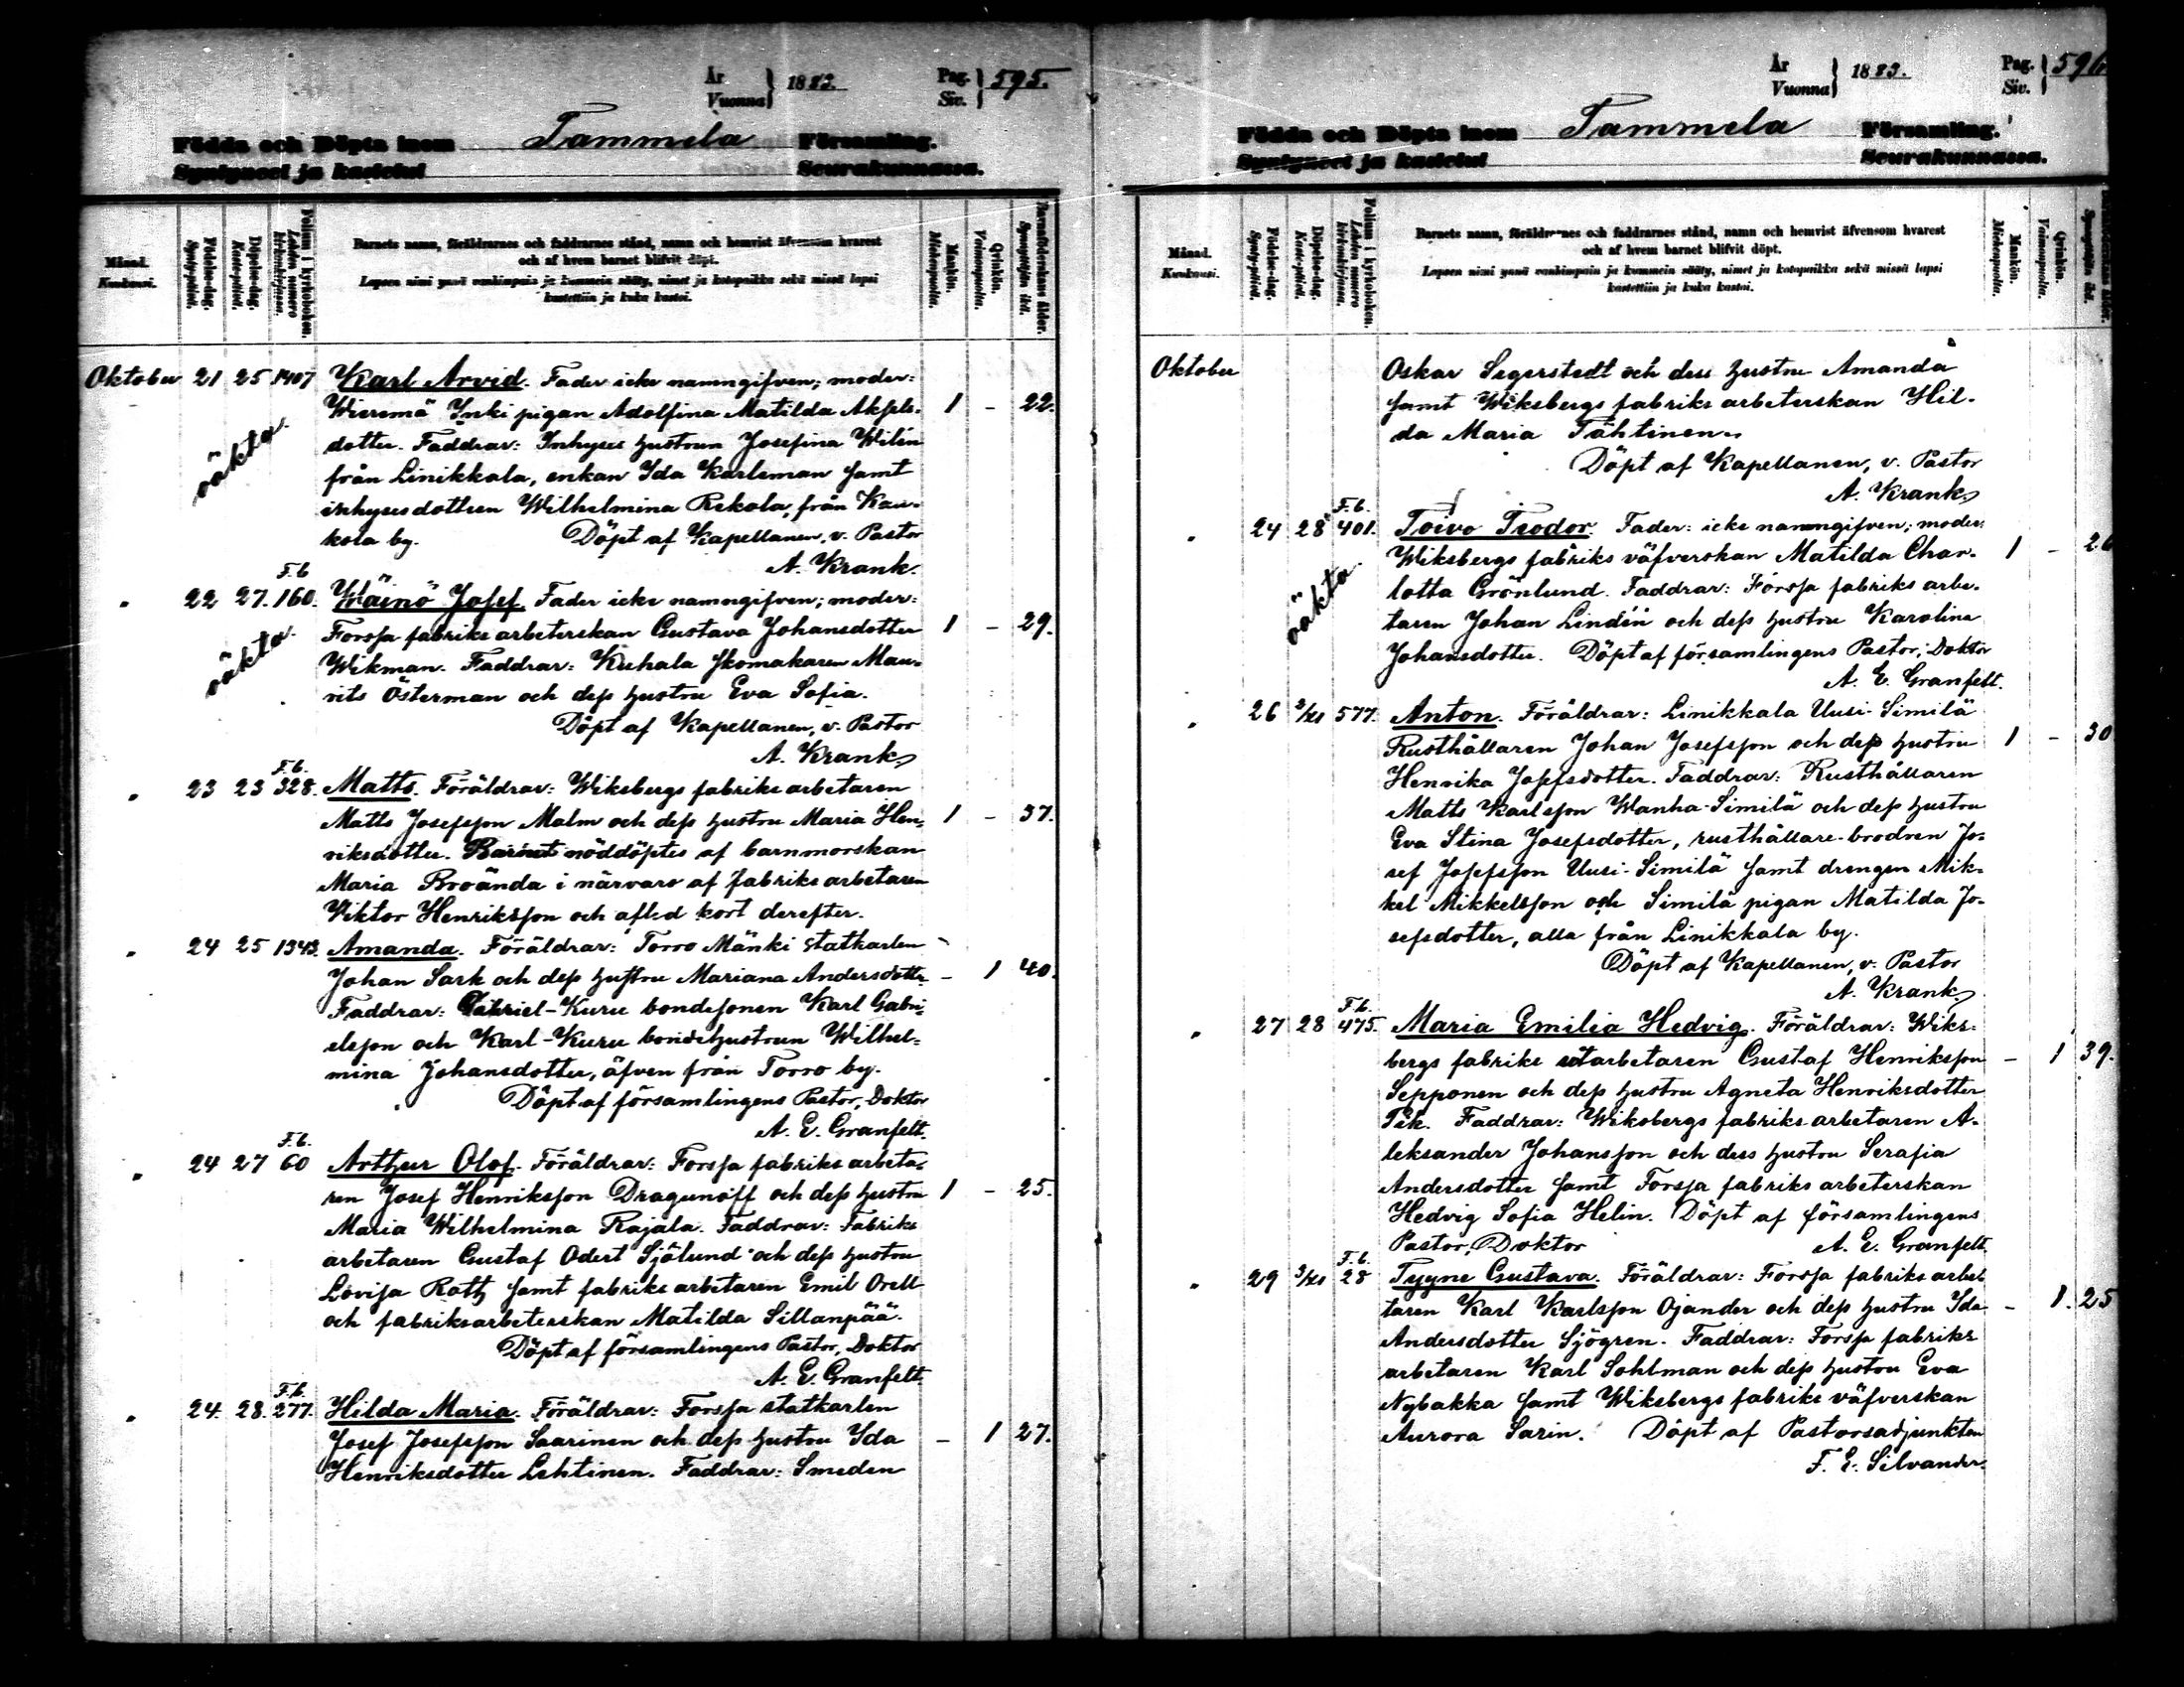 År
Vuonna } 1883. Pag.
Siv. } 595.
Födda och Döpta inom Tammela Församling.
Syntyneet ja kastetut Seurakunnassa.
Månad.
Kuukausi.
Födelse-dag.
Synty-päivä.
Döpelse-dag.
Kaste-päivä.
Folium i kyrkoboken.
Lehden numero
kirkonkirjassa.
Barnets namn, föräldrarnes och faddrarnes stånd, namn och hemvist äfvensom hvarest
och af hvem barnet blifvit döpt.
Lapsen nimi ynnä vanhimpain ja kummein sääty, nimet ja kotopaikka sekä missä lapsi
kastettiin ja kuka kastoi.
Mankön.
Miehenpuolia.
Qvinkön.
Vaimonpuolia.
Barnaföderskans ålder.
Synnyttäjän ikä.
Oktober 21 25 1407 Karl Arvid. Fader icke namngifven; moder:
Wiersmä Inki pigan Adolfina Matilda Aksels- 1 - 22.
oäkta.
dotter. Faddrar: Inhyses hustrun Josefina Wilén
från Linikkala, enkan Ida Karlsman samt
inhysesdottren Wilhelmina Rekola, från Kau-
kola by. Döpt af Kapellanen, v. Pastor
A. Krank.
F.b.
" 22 27. 160. Wäinö Josef. Fader icke namngifven; moder:
Forssa fabriks arbeterskan Gustava Johansdotter 1 - 29.
oäkta.
Wikman. Faddrar: Kuhala skomakaren Mau-
rits Österman och dess hustru Eva Sofia.
Döpt af Kapellanen, v. Pastor
A. Krank.
F.b.
" 23 23 328. Matts. Föräldrar: Wiksbergs fabriks arbetaren
Matts Josefsson Malm och dess hustru Maria Hen- 1 - 37.
riksdotter. Barnet nöddöptes af barnmorskan
Maria Broända i närvaro af fabriks arbetaren
Wiktor Henriksson och afled kort derefter.
" 24 25 1343. Amanda. Föräldrar: Torro Mänki statkarlen
Johan Sark och dess hustru Mariana Andersdotter - 1 40.
Faddrar: Gabriel-Kuru bondesonen Karl Gabri-
elsson och Karl-Kuru bondehustrun Wilhel-
mina Johansdotter, äfven från Torro by.
Döpt af församlingens Pastor, Doktor
A. E. Granfelt.
F.b.
" 24 27 60 Arthur Olof. Föräldrar: Forssa fabriks arbeta-
ren Josef Henriksson Dragunoff och dess hustru 1 - 25.
Maria Wilhelmina Rajala. Faddrar: Fabriks
arbetaren Gustaf Odert Sjölund och dess hustru
Lovisa Roth samt fabriks arbetaren Emil Orell
och fabriksarbeterskan Matilda Sillanpää.
Döpt af församlingens Pastor, Doktor
A. E. Granfelt.
F.b.
" 24. 28. 277. Hilda Maria. Föräldrar: Forssa statkarlen
Josef Josefsson Saarinen och dess hustru Ida - 1 27.
Henriksdotter Lehtinen. Faddrar: Smeden
År
Vuonna } 1883. Pag.
Siv. } 596
Födda och Döpta inom Tammela Församling.
Syntyneet ja kastetut Seurakunnassa.
Månad.
Kuukausi.
Födelse-dag.
Synty-päivä.
Döpelse-dag.
Kaste-päivä.
Folium i kyrkoboken.
Lehden numero
kirkonkirjassa.
Barnets namn, föräldrarnes och faddrarnes stånd, namn och hemvist äfvensom hvarest
och af hvem barnet blifvit döpt.
Lapsen nimi ynnä vanhimpain ja kummein sääty, nimet ja kotopaikka sekä missä lapsi
kastettiin ja kuka kastoi.
Mankön.
Miehenpuolia.
Qvinkön.
Vaimonpuolia.
Synnyttäjän ikä.
Oktober Oskar Segerstedt och dess hustru Amanda
samt Wiksbergs fabriks arbeterskan Hil-
da Maria Tähtinen.
Döpt af Kapellanen, v. Pastor
A. Krank.
F.b.
" 24 28 401. Toivo Teodor. Fader: icke namngifven; moder:
Wiksbergs fabriks väfverskan Matilda Char- 1 - 26
oäkta.
lotta Grönlund. Faddrar: Forssa fabriks arbe-
taren Johan Lindén och dess hustru Karolina
Johansdotter. Döpt af församlingens Pastor, Doktor
A. E. Granfelt.
" 26 2/11 577. Anton. Föräldrar: Linikkala Uusi-Similä
Rusthållaren Johan Josefsson och dess hustru 1 - 30
Henrika Josefsdotter. Faddrar: Rusthållaren
Matts Karlsson Wanha-Similä och dess hustru
Eva Stina Josefsdotter, rusthållare-brodren Jo-
sef Josefsson Uusi-Similä samt drengen Mik-
kel Mikkelsson och Similä pigan Matilda Jo-
sefsdotter, alla från Linikkala by.
Döpt af Kapellanen, v. Pastor
A. Krank.
F.b.
" 27 28 475. Maria Emilia Hedvig. Föräldrar: Wiks-
bergs fabriks utarbetaren Gustaf Henriksson - 1 39.
Sepponen och dess hustru Agneta Henriksdotter
Pik. Faddrar: Wiksbergs fabriks arbetaren A-
leksander Johansson och dess hustru Serafia
Andersdotter samt Forssa fabriks arbeterskan
Hedvig Sofia Helin. Döpt af församlingens
Pastor, Doktor A. E. Granfelt.
F.b.
" 29 3/11 28 Tyyne Gustava. Föräldrar: Forssa fabriks arbe-
taren Karl Karlsson Ojander och dess hustru Ida - 1. 25
Andersdotter Sjögren. Faddrar: Forssa fabriks
arbetaren Karl Sohlman och dess hustru Eva
Nybakka samt Wiksbergs fabriks väfverskan
Aurora Sarin. Döpt af Pastorsadjunkten
F. E. Silvander.